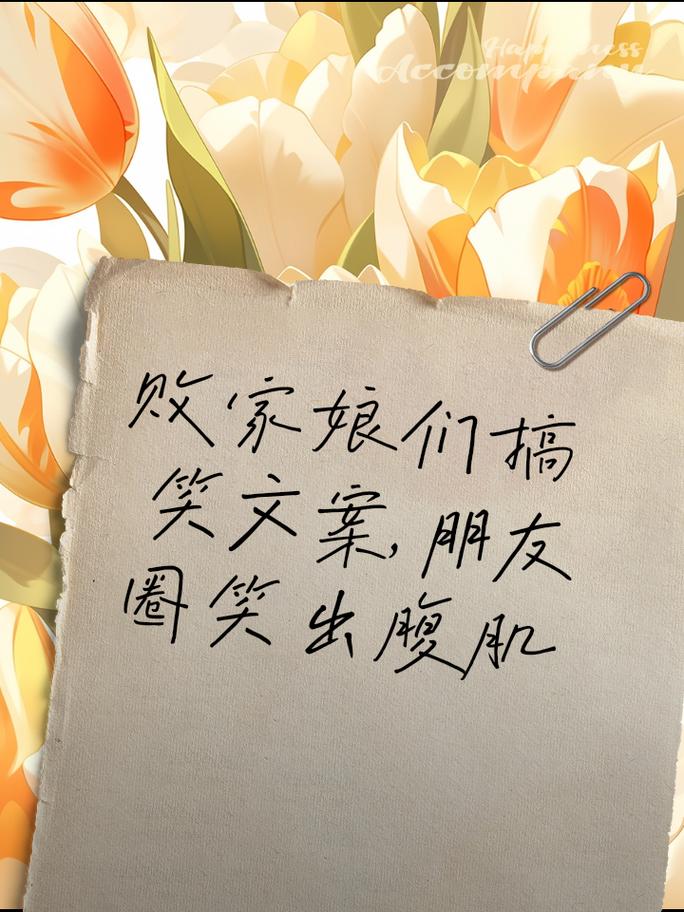 Happiness
Accompany
败家娘们搞
笑文案,朋友
圈笑出腹肌